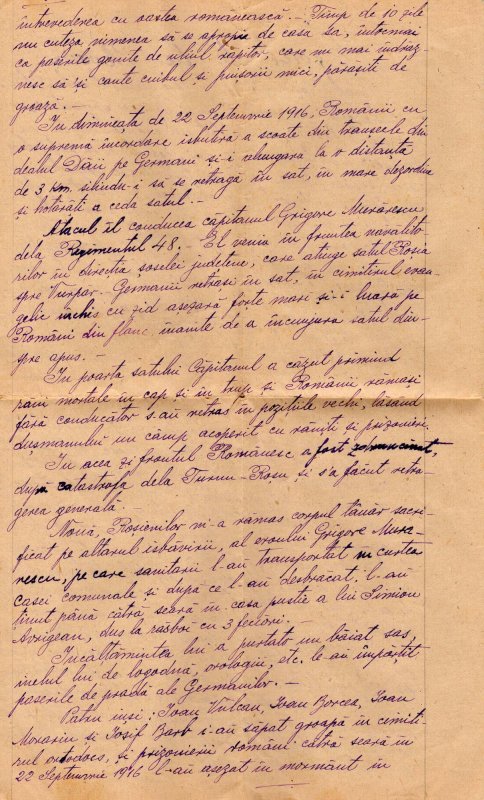 întrevederea cu oastea românească. – Timp de 10 zile
nu cuteza nimenea să se apropie de casa sa, întocmai
ca paserile gonite de uliul răpitor, care nu mai îndraz-
nesc să'și caute cuibul și puișorii mici, părăsiți de
groază. –
In dimineața de 22 Septemvrie 1916, Românii cu
o supremă încordare isbutiră a scoate din tranșeele din
dealul Dăii pe Germani si-i alungara la o distanța
de 3 km. silindu-i să se retragă în sat, în mare dezordine
și hotărâți a ceda satul. –
Atacul îl conducea căpitanul Grigore Murărescu
dela Regimentul 48. – El venia în fruntea navalito
rilor în direcția șoselei județene, care atinge satul Roșia
spre Vurpar. Germanii retrași in sat, in cimitirul evan-
gelic inchis cu zid așezară forte mari si-i luară pe
Români din flanc inainte de a incunjura satul din-
spre apus. –
In poarta satului Căpitanul a căzut primind
răni mortale in cap si in trup si Românii rămași
fără conducător s-au retras în pozițiile vechi, lăsând
dușmanului un câmp acoperit cu răniți si prizonieri.
In acea zi frontul Românesc a fost zdruncinat,
după catastrofa dela Turnu-Roșu si s'a făcut retra-
gerea generală.
Nouă, Roșienilor ni-a rămas corpul tânăr sacri-
ficat pe altarul isbăvirii, al eroului Grigore Mura-
rescu, pe care sanitarii l-au transportat in curtea
Casei comunale și după ce l-au desbrăcat, l-au
ținut până cătră seară în casa pustie a lui Simion
Avrigean, dus la răsboi cu 3 feciori.
Incălțămintea lui a purtato un băiat sas,
inelul lui de logodnă, orologiu, etc. le-au împărțit
paserile de pradă ale Germanilor. –
Patru inși: Ioan Vulcan, Ioan Borcea, Ioan
Morariu si Iosif Barb i-au săpat groapa in cimiti-
rul ortodocs, si prizonierii români cătră seară în
22 Septemvrie 1916 l-au așezat în mormânt in